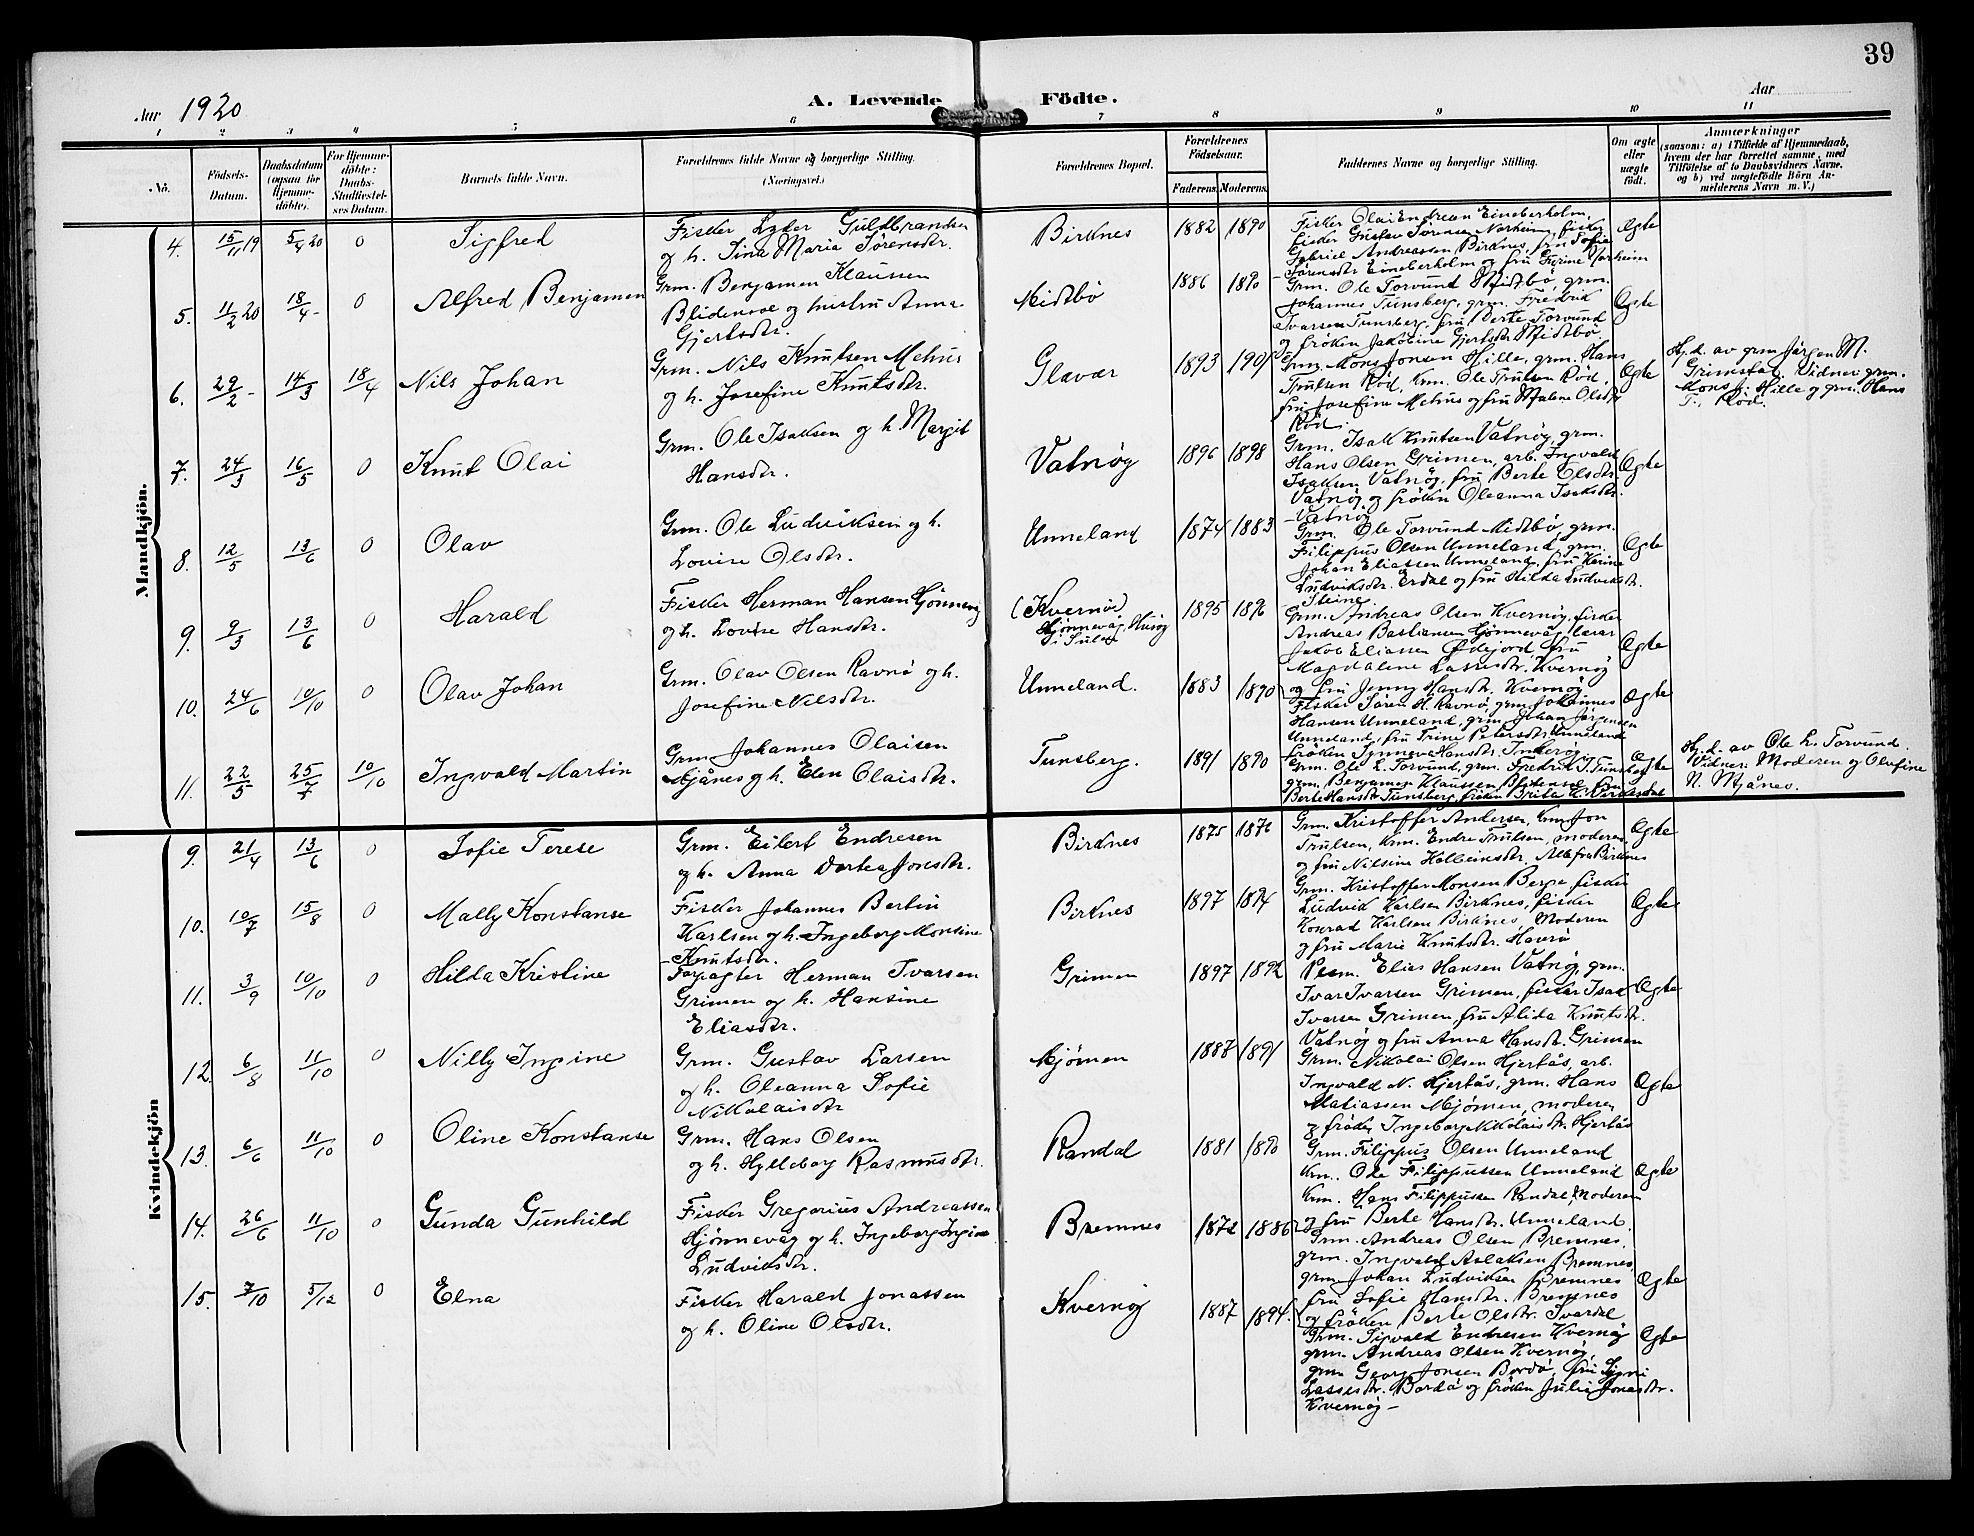 39
Aar 1920
A. Levende Födte.
Aar
1 2 3 4 5 6 7 8 9 10 11
No.
Födsels-
Datum.
Daabsdatum
(ogsaa for
Hjemme-
döbte).
For Hjemme-
döbte:
Daabs-
Stadfæstel-
ses Datum.
Barnets fulde Navn.
Forældrenes fulde Navne og borgerlige Stilling.
(Næringsvei.)
Forældrenes Bopæl.
Forældrenes
Födselsaar.
Faderens. Moderens.
Faddernes Navne og borgerlige Stilling.
Om ægte
eller
uægte
födt.
Anmærkninger
(saasom: a) i Tilfælde af Hjemmedaab,
hvem der har forrettet samme, med
Tilföielse af to Daabsvidners Navne,
og b) ved uægtefödte Börn An-
melderens Navn m. V.)
Mandkjön.
4. 15/11 19 5/4 20 0 Sigfred
Fisker Lyder Guldbrandsen
og h. Sina Maria Sørensdr.
Birknes 1882 1890
Fisker Olai Endresen Eineberholm,
fisker Gustav Sørensen Norheim, fisker
Gabriel Andreassen Birknes, fru Sofie
Sørensdr Eineberholm og fru Norheim
Ægte
5. 11/2 20 18/4 - 0 Alfred Benjamen
Grm. Benjamen Klaussen
og hustru Anna
Gjertsdr.
Midtbö 1886 1890
Grm. Ole Torvund Midtbö, grm.
Johannes Tunsberg, grm. Fredrik
Ivarsen Tunsberg, fru Berte Torvund
og fröken Jakobine Gjertsdr Midtbö
Ægte
6. 29/2 - 14/3 18/4 Nils Johan
Grm. Nils Knutsen Mehus
og h. Josefine Knutsdr.
Glavær 1893 1901
Grm. Mons Jonsen Hille, grm. Hans
Trulsen Röd, Krm. Ole Trulsen Röd,
fru Josefine Mehus og fru Malene Olsdr
Röd.
Ægte
Hj. d. av grm Jørgen M.
Grimstad. Vidner: grm.
Mons J. Hille og grm. Hans
T. Röd.
7. 24/3 16/5 0 Knut Olai
Grm. Ole Isaksen og h. Margit
Hansdr.
Vatnöy 1896 1898
Grm. Isak Knutsen Vatnöy, grm.
Hans Olsen Grimen, arb. Ingvald
Isaksen Vatnöy, fru Berte Olsdr.
Vatnöy og fröken Oleanna Isaksdr.
Vatnöy
Ægte
8. 12/5 13/6 0 Olav
Grm. Ole Ludviksen og h.
Lovise Olsdr.
Unneland 1874 1883
Grm. Ole Torvund Midtbö, grm.
Filippus Olsen Unneland, grm.
Johan Eliassen Unneland, fru Karine
Ludviksdr. Erdal og fru Hilda Ludviksdr.
Steine
Ægte
9. 9/3 13/6 0 Harald
Fisker Herman Hansen Hjönnevåg
og h. Lovise Hansdr.
(Kvernöy)
Hjönnevåg, Husöy
i Sulen
1895 1896
Grm. Andreas Olsen Kvernöy, fisker
Andreas Bastiansen Hjönnevåg, lærar
Jakob Eliassen Ödejord, fru
Magdalene Lassesdr. Kvernöy
og fru Jenny Hansdr. Kvernöy
Ægte
10. 24/6 10/10 0 Olav Johan
Grm. Olav Olsen Ravnö og h.
Josefine Nilsdr.
Unneland. 1883 1890
Fisker Sören H. Ravnö, grm Johannes
Hansen Unneland, grm. Johan Jørgensen
Unneland, fru Trine Petersdr. Unneland
fröken Synneva Hansdr.
Ægte
11. 22/5 25/7 10/10 Ingvald Martin
Grm Johannes Olaisen
Mjånes og h. Elen Olaisdr.
Tunsberg. 1891 1890
Grm. Ole L. Torvund, grm. Fredrik I. Tunsberg
grm. Benjamen Klaussen fru
Berte Hansdr Tunsberg, fröken Brite
Ægte
Hj. d. av Ole L. Torvund.
Vidner: Moderen og Olefine
N. Mjånes.
Kvindekjön
9. 21/4 13/6 0 Sofie Terese
Grm. Eilert Endresen
og h. Anna Dortea Jonsdr.
Birknes 1875 1876
Grm. Kristoffer Andersen, krm Jon
Trulsen, krm. Endre Trulsen, moderen
og fru Nilsine Kolleinsdr. Alle fra Birknes
Ægte
10. 10/7 15/8 0 Mally Konstanse
Fisker Johannes Bertin
Karlsen og h. Ingeborg Monsine
Knutsdr.
Birknes 1897 1894
Grm. Kristoffer Monsen Berge, fisker
Ludvik Karlsen Birknes, fisker
Konrad Karlsen Birknes, Moderen
og fru Marie Knutsdr. Havrö
Ægte
11. 3/9 10/10 0 Hilda Kristine
Forpagter Herman Ivarsen
Grimen og h. Hansine
Eliasdr.
Grimen 1897 1892
Pesm. Elias Hansen Vatnöy, grm.
Ivar Ivarsen Grimen, fisker Isak
Ivarsen Grimen, fru Alida Knutsdr.
Vatnöy og fru Anna Hansdr. Grimen
Ægte
12. 6/8 11/10 0 Nilly Ingine
Grm. Gustav Larsen
og h. Oleanna Sofie
Nikolaisdr
Mjømen 1887 1891
Grm. Nikolai Olsen Hjertås, arb.
Ingvald N. Hjertås, grm. Hans
Matiassen Mjømen, moderen
og fröken Ingeborg Nikolaisdr. Hjertås
Ægte
13. 6/6 11/10 0 Oline Konstanse
Grm. Hans Olsen
og h. Hylleborg Rasmusdr.
Randal 1881 1890
Grm. Filippus Olsen Unneland
Krm. Ole Filippussen Unneland
Krm. Hans Filippussen Randal, Moderen
og fru Berte Hansdr. Unneland.
Ægte
14. 26/6 11/10 0 Gunda Gunhild
Fisker Gregorius Andreassen
Hjönnevåg og h. Ingeborg Ingine
Ludviksdr.
Bremnes 1872 1886
Grm. Andreas Olsen Bremnes,
grm. Ingvald Aslaksen Bremnes,
grm. Johan Ludviksen Bremnes
fru Sofie Hansdr. Bremnes
og fröken Berte Olsdr. Ivardal
Ægte
15. 7/10 5/12 0 Elna
Fisker Harald Jonassen
og h. Oline Olsdr.
Kvernöy 1887 1894
Grm. Sigvald Endresen Kvernöy
grm. Andreas Olsen Kvernöy,
grm Georg Jonsen Bordö, fru Signi
Lassesdr. Bordö og fröken Julie Jonasdr.
Kvernöy -
Ægte